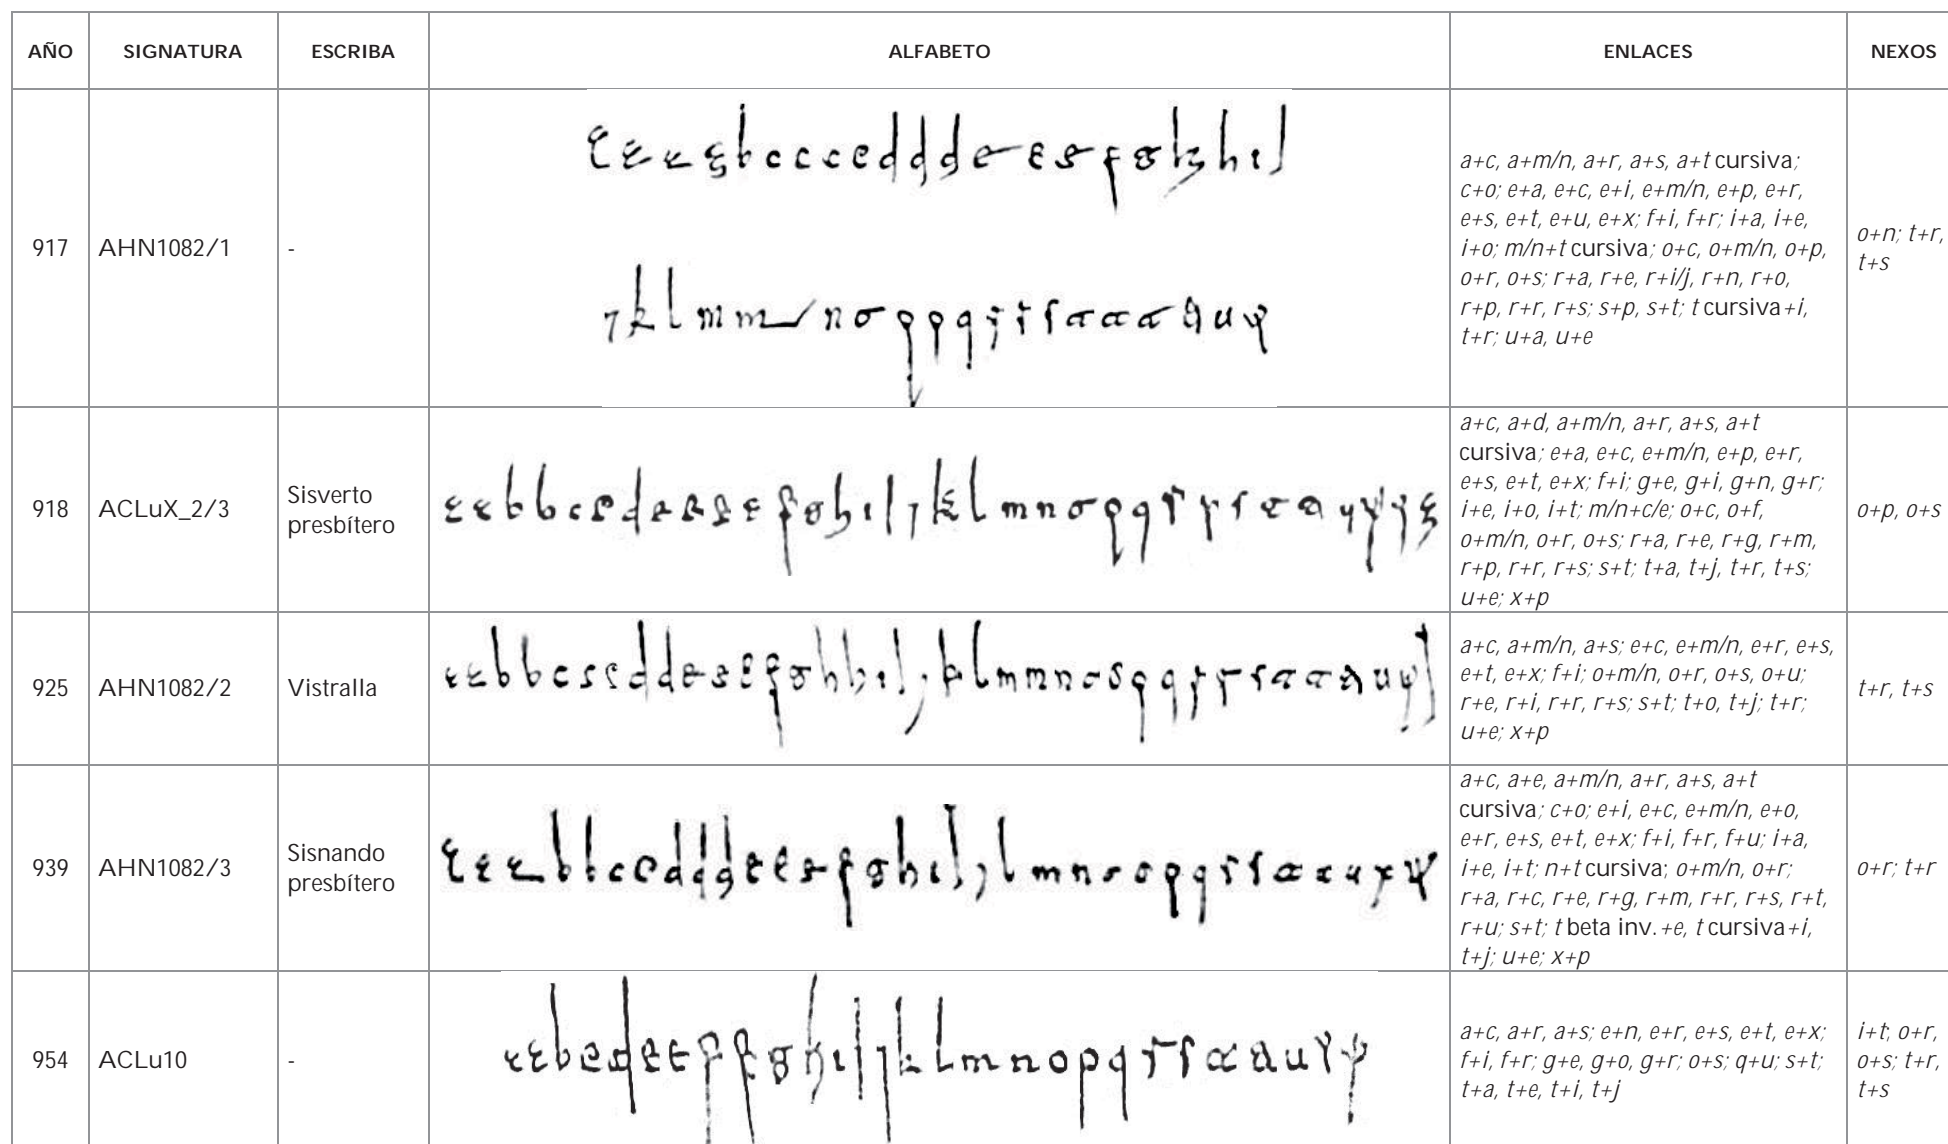 AÑO SIGNATURA ESCRIBA ALFABETO ENLACES NEXOS
917
AHN1082/1
-
a+c, a+m/n, a+r, a+s, a+t cursiva;
c+o; e+a, e+c, e+i, e+m/n, e+p, e+r,
e+s, e+t, e+u, e+x; f+i, f+r; i+a, i+e,
i+o; m/n+t cursiva; o+c, o+m/n, o+p,
o+r, o+s; r+a, r+e, r+i/j, r+n, r+o,
r+p, r+r, r+s; s+p, s+t; t cursiva+i,
t+r; u+a, u+e
o+n; t+r,
t+s
918
ACLuX_2/3
Sisverto
presbítero
a+c, a+d, a+m/n, a+r, a+s, a+t
cursiva; e+a, e+c, e+m/n, e+p, e+r,
e+s, e+t, e+x; f+i; g+e, g+i, g+n, g+r;
i+e, i+o, i+t; m/n+c/e; o+c, o+f,
o+m/n, o+r, o+s; r+a, r+e, r+g, r+m,
r+p, r+r, r+s; s+t; t+a, t+j, t+r, t+s;
u+e; x+p
o+p, o+s
925
AHN1082/2
Vistralla
a+c, a+m/n, a+s; e+c, e+m/n, e+r, e+s,
e+t, e+x; f+i; o+m/n, o+r, o+s, o+u;
r+e, r+i, r+r, r+s; s+t; t+o, t+j; t+r;
u+e; x+p
t+r, t+s
939
AHN1082/3
Sisnando
presbítero
a+c, a+e, a+m/n, a+r, a+s, a+t
cursiva; c+o; e+i, e+c, e+m/n, e+o,
e+r, e+s, e+t, e+x; f+i, f+r, f+u; i+a,
i+e, i+t; n+t cursiva; o+m/n, o+r;
r+a, r+c, r+e, r+g, r+m, r+r, r+s, r+t,
r+u; s+t; t beta inv.+e, t cursiva+i,
t+j; u+e; x+p
o+r; t+r
954
ACLu10
-
a+c, a+r, a+s; e+n, e+r, e+s, e+t, e+x;
f+i, f+r; g+e, g+o, g+r; o+s; q+u; s+t;
t+a, t+e, t+i, t+j
i+t; o+r,
o+s; t+r,
t+s